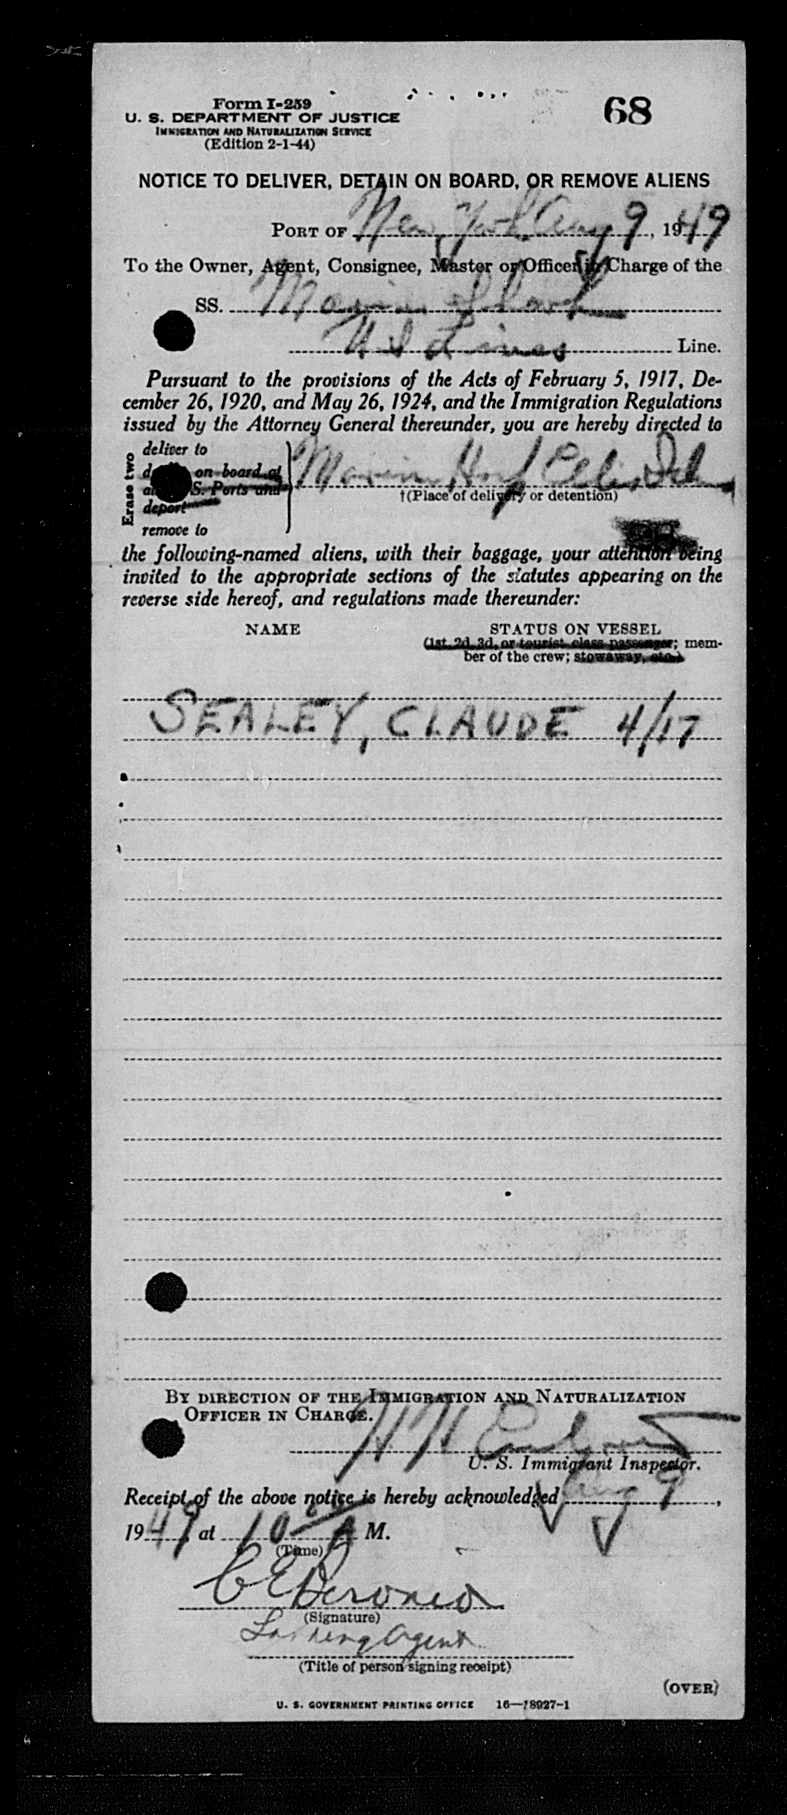 Form I-259
68
U. S. DEPARTMENT OF JUSTICE
IMMIGRATION AND NATURALIZATION SERVICE
(Edition 2-1-44)
NOTICE TO DELIVER, DETAIN ON BOARD, OR REMOVE ALIENS
PORT OF New York, Aug 9, 1949
To the Owner, Agent, Consignee, Master or Officer in Charge of the
SS. Marine Shark
U S Lines Line.
Pursuant to the provisions of the Acts of February 5, 1917, De-
cember 26, 1920, and May 26, 1924, and the Immigration Regulations
issued by the Attorney General thereunder, you are hereby directed to
Erase two
deliver to
on board at
S. Ports and
deport
remove to
Marine Hosp Ellis Isl
†(Place of delivery or detention)
the following-named aliens, with their baggage, your attention being
invited to the appropriate sections of the statutes appearing on the
reverse side hereof, and regulations made thereunder:
NAME STATUS ON VESSEL
(1st, 2d, 3d, or tourist class passenger; mem-
ber of the crew; stowaway, etc.)
SEALEY, CLAUDE 4/17
BY DIRECTION OF THE IMMIGRATION AND NATURALIZATION
OFFICER IN CHARGE.
U. S. Immigrant Inspector.
Receipt of the above notice is hereby acknowledged Aug 9,
1949, at 10 A M.
(Time)
(Signature)
Agent
(Title of person signing receipt)
(OVER)
U. S. GOVERNMENT PRINTING OFFICE 16—18927-1